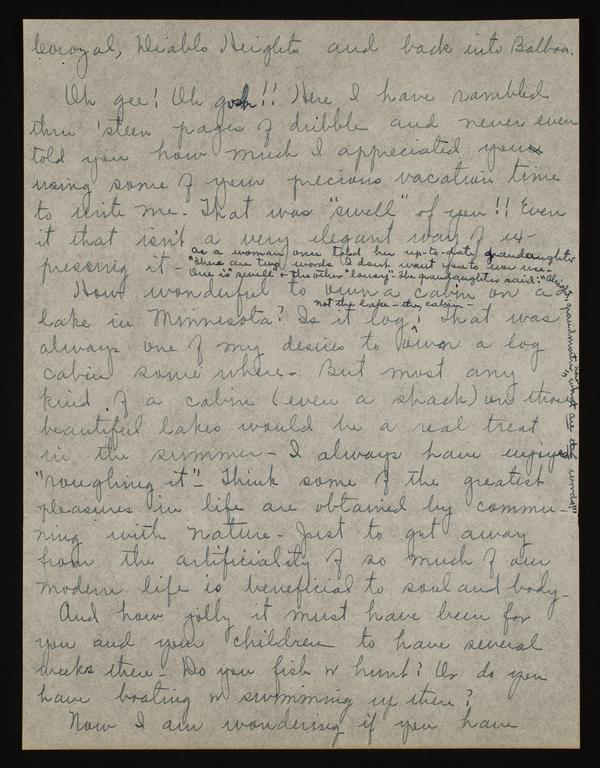 Corozal, Diablo Heights and back into Balboa.
Oh gee! Oh gosh!! Here I have rambled
thru 'steen pages of dribble and never even
told you how much I appreciated your
using some of your precious vacation time
to write me. That was "swell" of you!! Even
it that isn't a very elegant way of ex-
pressing it -
as a woman once told her up-to-date grandaughter
"There are two words I don't want you to ever use.
One is "swell" & the other "lousy". The grandaughter said: "Alright, grandmother,
what are the words?"
How wonderful to own a cabin on a
not the lake - the cabin -
lake in Minnesota? Is it log? That was
always one of my desires to own a log
cabin some where. But most any
kind of a cabin (even a shack) on those
beautiful lakes would be a real treat
in the summer - I always have enjoyed
"roughing it" - Think some of the greatest
pleasures in life are obtained by commu-
ning with nature - Just to get away
from the artificiality of so much of our
modern life is beneficial to soul and body -
And how jolly it must have been for
you and your children to have several
weeks there - Do you fish or hunt? Or do you
have boating or swimming up there?
Now I am wondering if you have